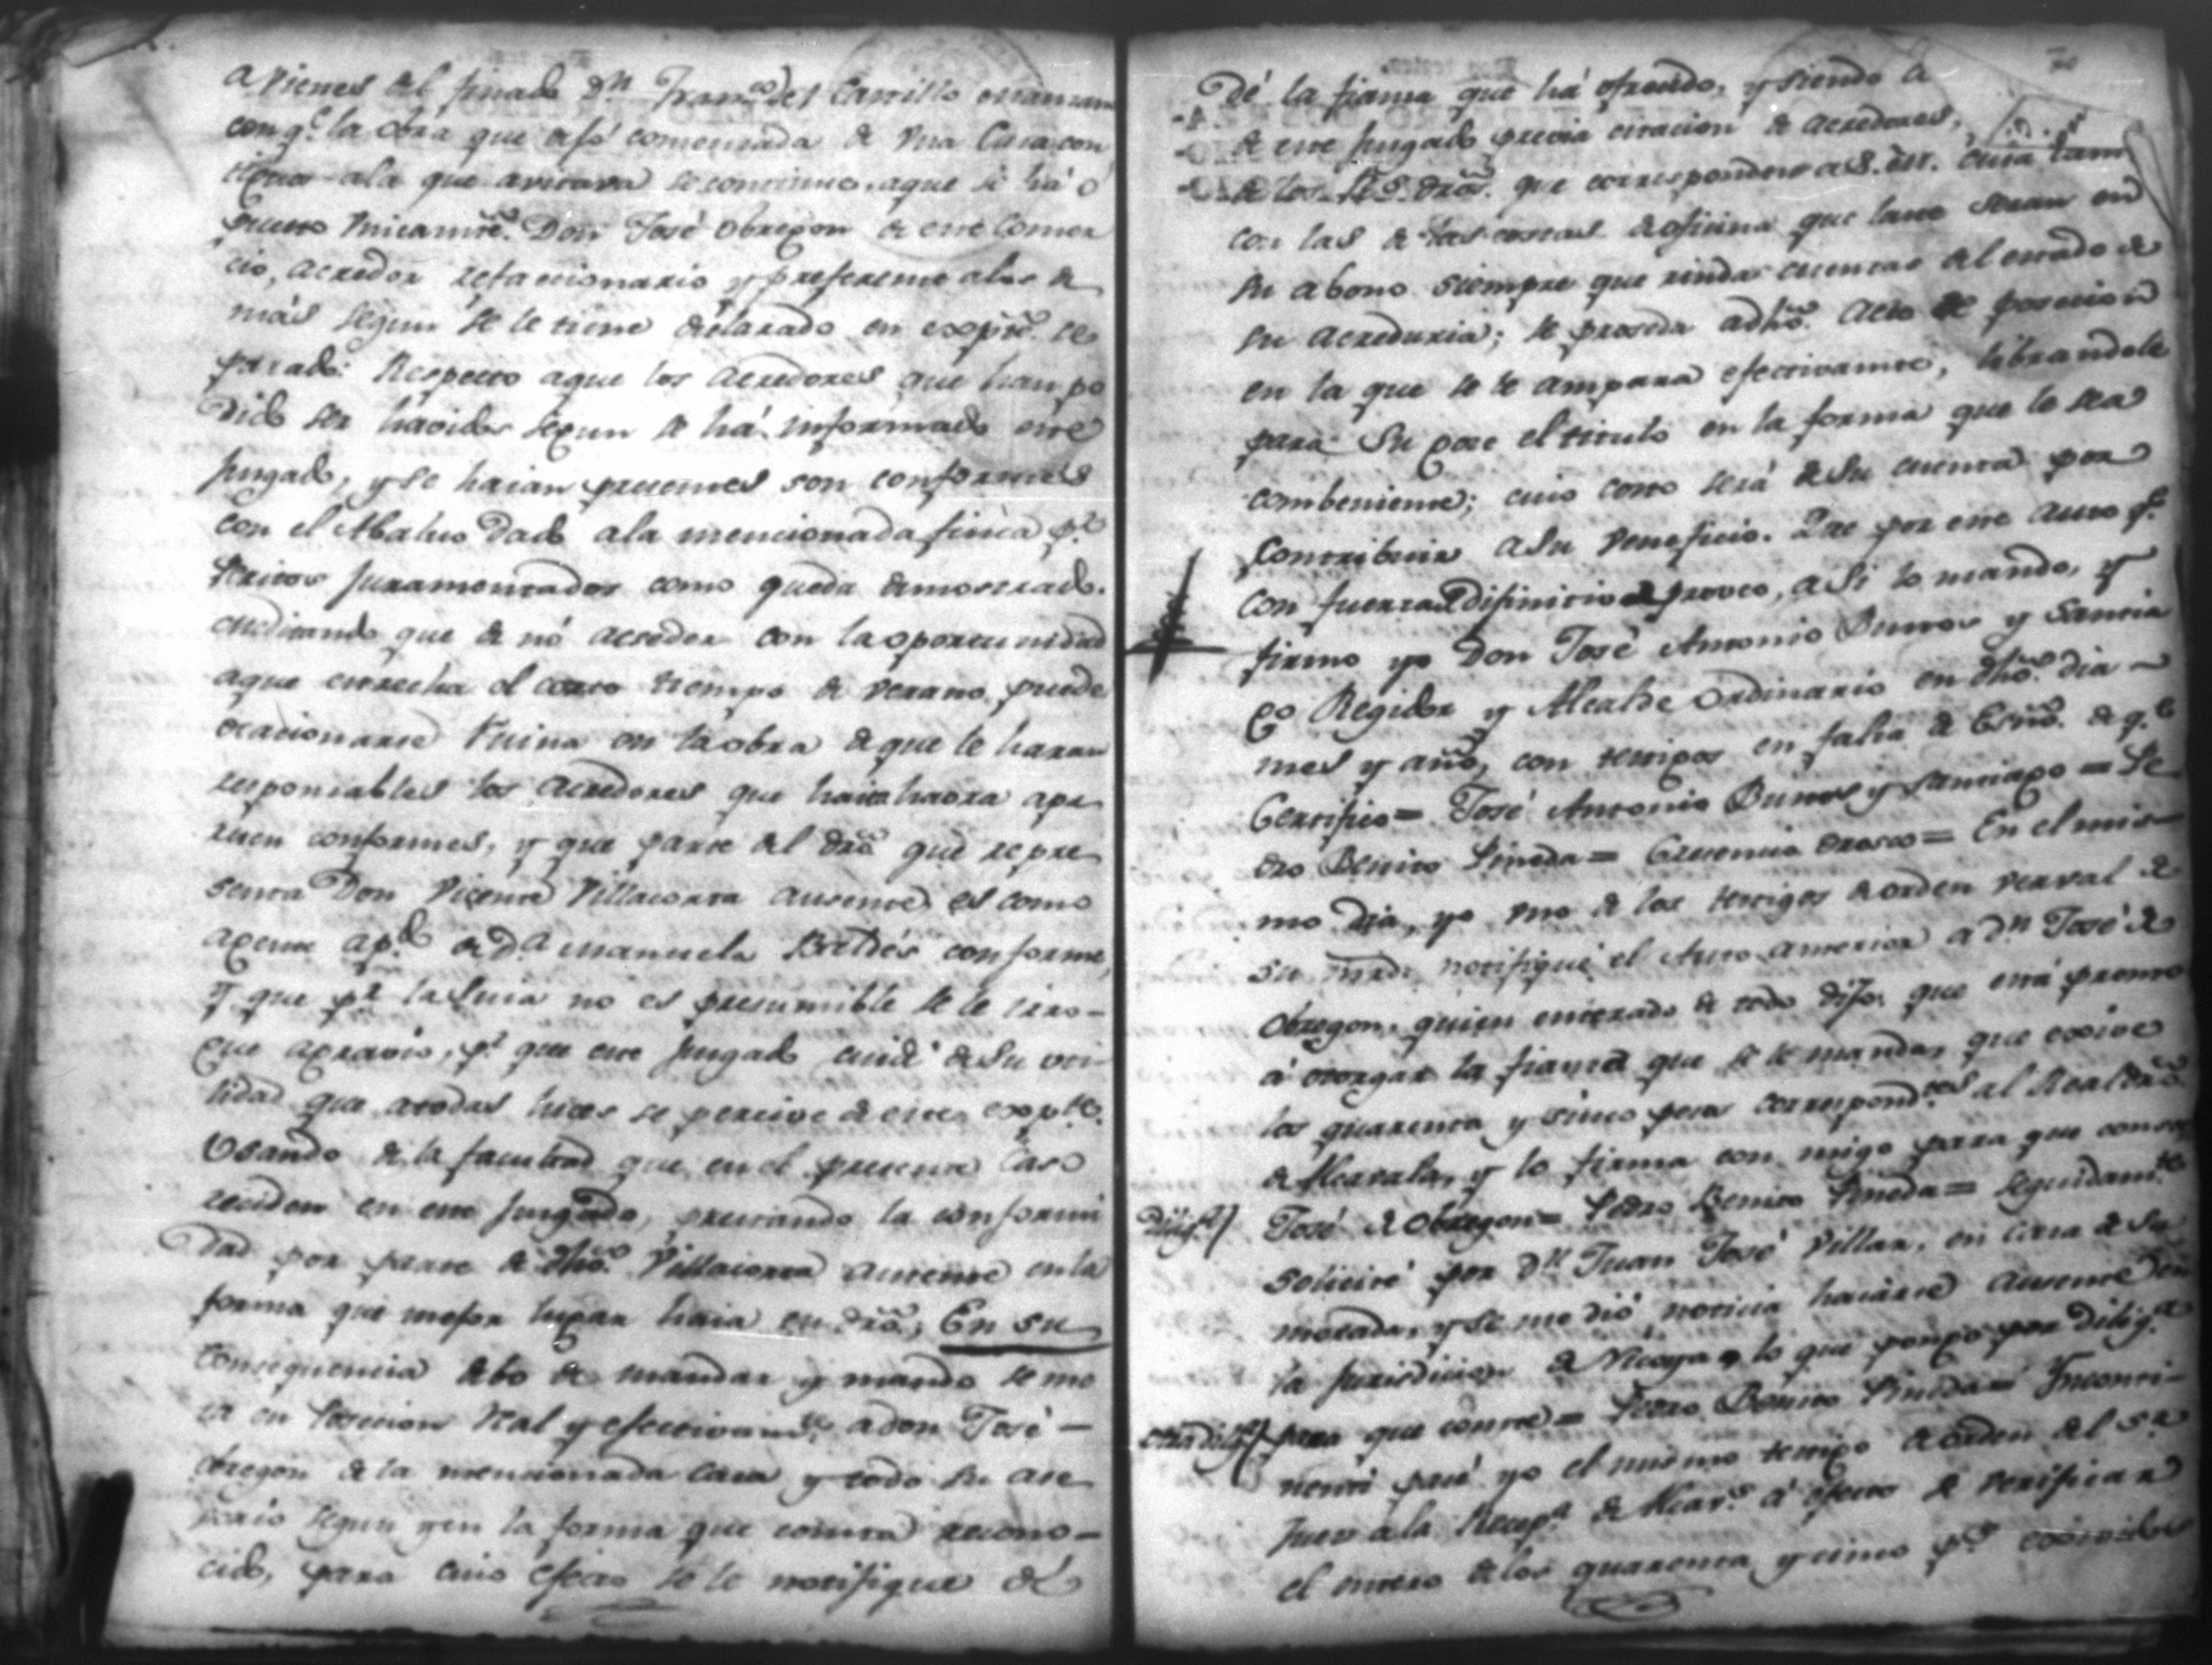 a vienes del finado Dn. Franco. del Carrillo
con qe. la obra que dejó comenzada de una Casa con
a la que avitava se continue, a que se há o
puesto unicamte. Don José Obregon de este Comer
cio, acredor refaccionario y preferente a los de
más segun se le tiene declarado en expte. se
parado: Respecto a que los Acredores que han po
dido ser havidos segun se há informado este
Juzgado, y se haian presentes son conformes
con el Abaluo dado a la mencionada finca pr.
Peritos Juramentados como queda demostrado.
meditando que de nó acceder con la oportunidad
a que estrecha el corto tiempo de verano, puede
ocacionarse Ruina en la obra de que le haran
responsables los Acredores que haian
conformes, y que parte del dro. que repre
senta Don Vicente Villacorta ausente, es como
agente apdo. de Da. Manuela Baldés conforme,
y que pr. la Suia no es presumible se le irro-
gue agravio, pr. que este Juzgado cuida de su uti
lidad que a todas luces se percive de este expte.
Usando de la facultad que en el presente Caso
reciden en este Juzgado, prestando la conformi
dad por parte de dho. Villacorta ausente en la
forma que mejor lugar haia en dro., En su
consequencia debo de mandar y mando se me
ta en Posecion Real y efectivamte. a don José-
Obregon de la mencionada casa y todo su
segun y en la forma que consta recono-
cido, para cuio efecto se le notifique dé
Dé la fianza que há ofrecido, y siendo la
de este Juzgado previa citacion de acredores,
de los dros. que corresponden a S. M. cuia
con las de las costas de oficina que laste seran en
su abono siempre que rinda cuentas del estado de
su acreduria; se proseda a dho. Acto de posecion
en la que se le ampara efectivamte, librandole
para su goce el titulo en la forma que le sea
combeniente; cuio costo será de su cuenta por
Contribuir a su veneficio. Que por este auto qe.
con fuerza de difinitivo proveo, a Si lo mando, y
firmo yo Don José Antonio Bustos y Santia
go Regidor y Alcalde Ordinario en dho. dia
mes y año, con testigos en falta de Esno. de qe.
Certifico= José Antonio Bustos y Santiago= Pe
dro Benito Pineda= Crecencio Orosco= En el mis-
mo dia, yo uno de los testigos de orden verval de
su mrd. notifiqué el Auto anterior a Dn. José de
Obregon, quien enterado de todo dijo: que está pronto
á otorgar la fianza que se le manda, que exive
los quarenta y sinco pesos correspondtes. al Real dro.
de Alcavala, y lo firma con migo para que conste
Diliga. José de Obregon= Pedro Benito Pineda= Seguidamte.
solicité por Dn. Juan José Villar, en casa de su
morada, y se me dió noticia hallarse ausente en
la Jurisdicion de Nicoya, lo que pongo por diliga.
Otra diliga. para que conste= Pedro Benito Pineda= Yncontí-
nenti pasé yo el mismo testigo de orden del Sr.
Juez a la Recepa. de Alcavs. á efecto de verificar
el entero de los quarenta y cinco ps. exividos